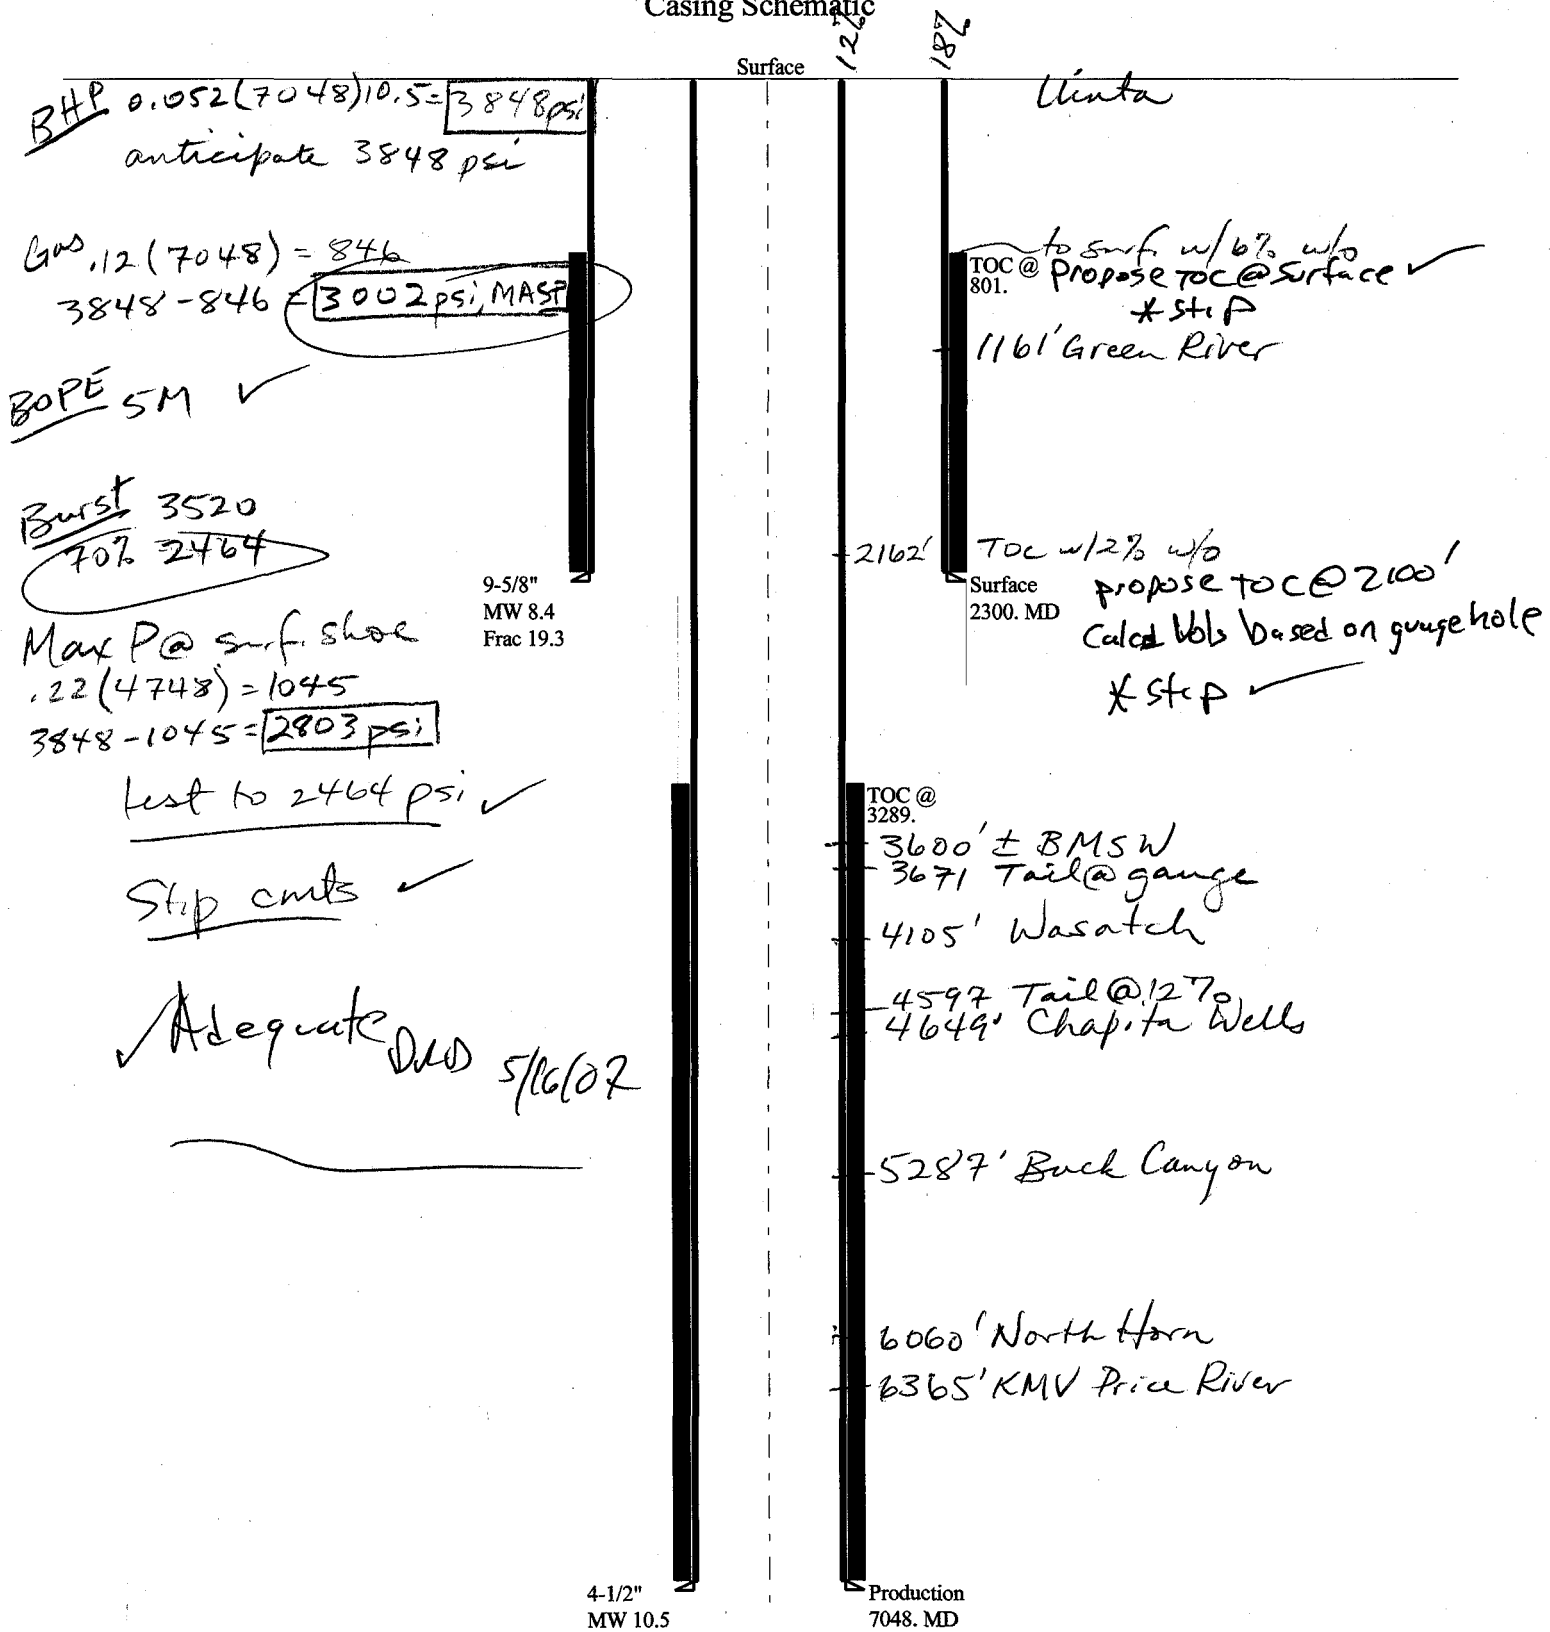 Casing Schematic
12%
18%
Surface
Uinta
BHP 0.052(7048)10.5=3848psi
anticipate 3848 psi
Gas .12(7048) = 846
3848-846 = 3002psi, MASP
BOPE 5M ✓
Burst 3520
70% 2464
Max P@ surf. shoe
.22(4748)=1045
3848-1045=2803 psi
test to 2464 psi ✓
Stip cmts ✓
✓ Adequate DRD 5/16/07
to surf. w/6% w/o
TOC @
801.
Propose TOC@Surface ✓
*Stip
1161' Green River
2162' TOC w/2% w/o
9-5/8"
MW 8.4
Frac 19.3
Surface
2300. MD
propose TOC@2100'
Calcd Vols based on guage hole
*Stip ✓
TOC @
3289.
3600' ± BMSW
3671 Tail@gauge
4105' Wasatch
4597 Tail@12%
4649' Chapita Wells
5287' Buck Canyon
6060' North Horn
6365' KMV Price River
4-1/2"
MW 10.5
Production
7048. MD